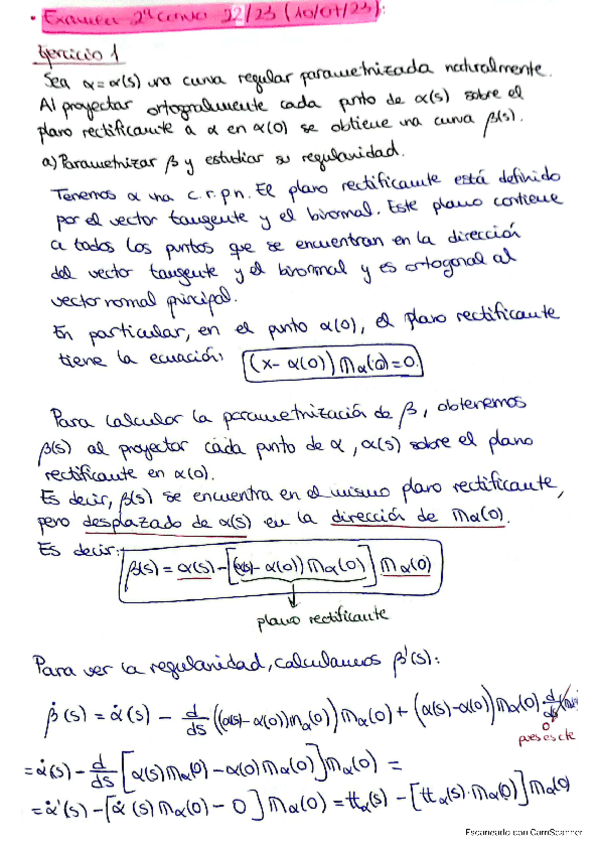 • Examen 2ª convo 22/23 (10/07/23):
Ejercicio 1
Sea α=α(s) una curva regular parametrizada naturalmente.
Al proyectar ortogonalmente cada punto de α(s) sobre el
plano rectificante a α en α(0) se obtiene una curva β(s).
a) Parametrizar β y estudiar su regularidad.
Tenemos α una c.r.p.n. El plano rectificante está definido
por el vector tangente y el binormal. Este plano contiene
a todos los puntos que se encuentran en la dirección
del vector tangente y el binormal y es ortogonal al
vector normal principal.
En particular, en el punto α(0), el plano rectificante
tiene la ecuación: (x-α(0)) nα(0)=0.
Para calcular la parametrización de β, obtenemos
β(s) al proyectar cada punto de α, α(s) sobre el plano
rectificante en α(0).
Es decir, β(s) se encuentra en el mismo plano rectificante,
pero desplazado de α(s) en la dirección de nα(0).
Es decir: β(s) = α(s) - [(α(s)-α(0)) nα(0)] nα(0)
plano rectificante
Para ver la regularidad, calculamos β'(s):
β̇(s) = α̇(s) - d/ds ((α(s)-α(0)) nα(0)) nα(0) + (α(s)-α(0)) nα(0) d/ds (nα(0))
0
pues es cte
= α̇(s) - d/ds [α(s) nα(0) - α(0) nα(0)] nα(0) =
= α̇'(s) - [α̇(s) nα(0) - 0] nα(0) = tα(s) - [tα(s)·nα(0)] nα(0)
Escaneado con CamScanner